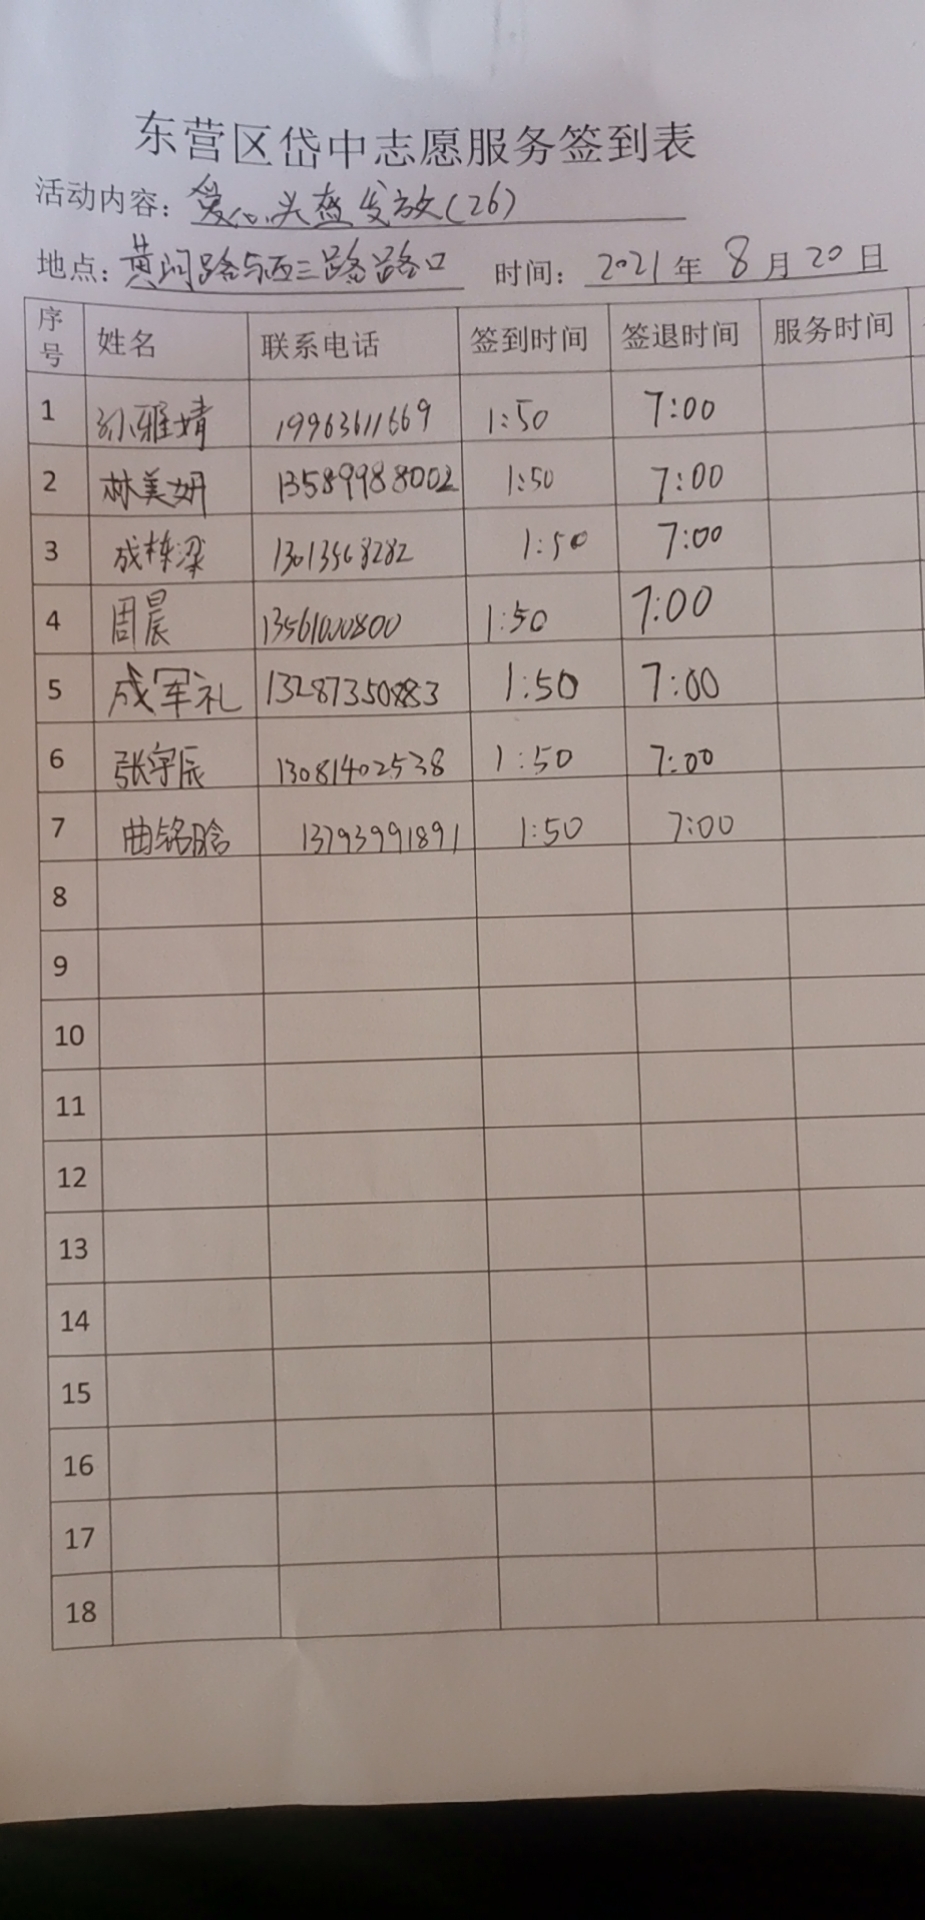 东营区岱中志愿服务签到表
活动内容：爱心头盔发放（26）
地点：黄河路与西三路路口 时间：2021年8月20日
序号 姓名 联系电话 签到时间 签退时间 服务时间
1 孙雅婧 19963611669 1:50 7:00
2 林美妍 13589988002 1:50 7:00
3 成栋梁 13013568282 1:50 7:00
4 周晨 13561000800 1:50 7:00
5 成军礼 1:50 7:00
6 张宇辰 13081402538 1:50 7:00
7 曲铭晗 13793991891 1:50 7:00
8
9
10
11
12
13
14
15
16
17
18